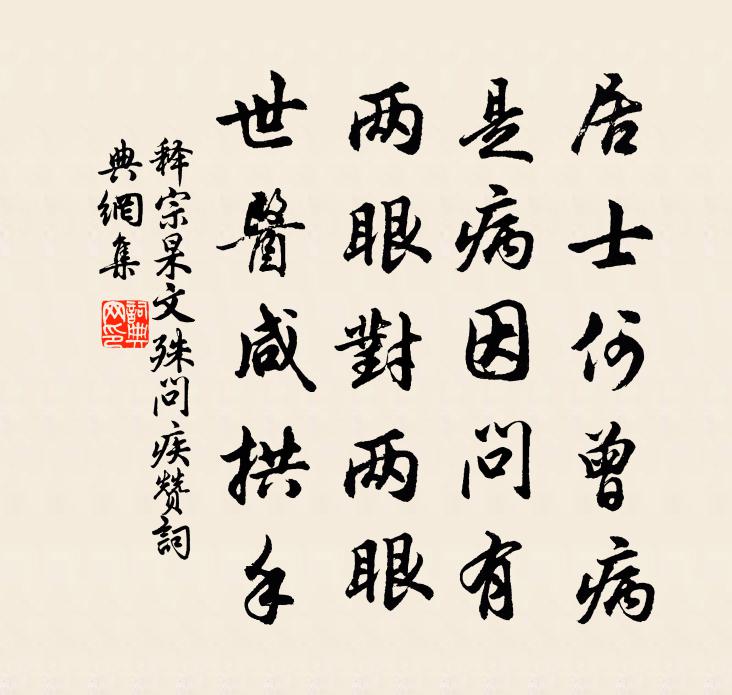 居士何曾病
是病因问有
两眼對两眼
世醫咸拱手
释宗杲文殊问疾赞詞
典網集
詞典网印